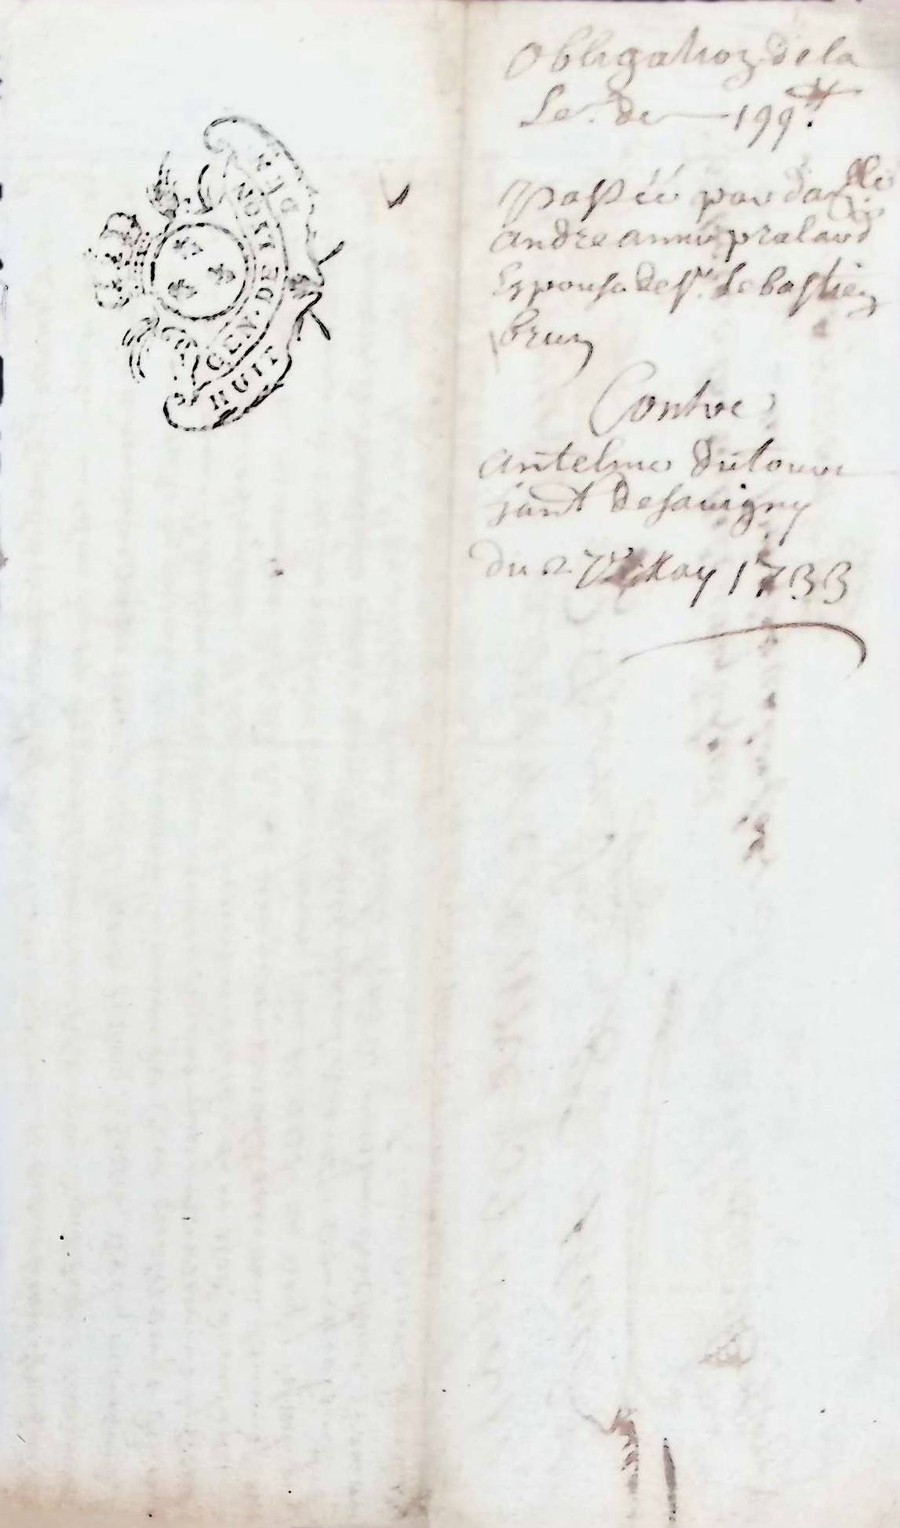 GEN·DE DIJON
HUIT
Obligation de la
So.e de 199 tt
Passéé par da.lle
andre anne pralard
Epouse de s.r Sebastien
brun
Contre
antelme dutour
jant de savigny
du 2 may 1733